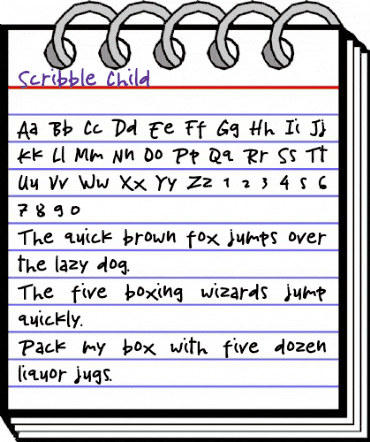 Scribble Child
Aa Bb Cc Dd Ee Ff Gg Hh Ii Jj
Kk Ll Mm Nn Oo Pp Qq Rr Ss Tt
Uu Vv Ww Xx Yy Zz 1 2 3 4 5 6
7 8 9 0
The quick brown fox jumps over
the lazy dog.
The five boxing wizards jump
quickly.
Pack my box with five dozen
liquor jugs.